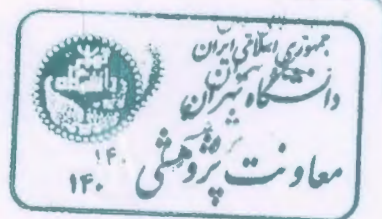 جمهوری اسلامی ایران
دانشگاه تهران
معاونت پژوهشی
۱۴۰
۱۴۰